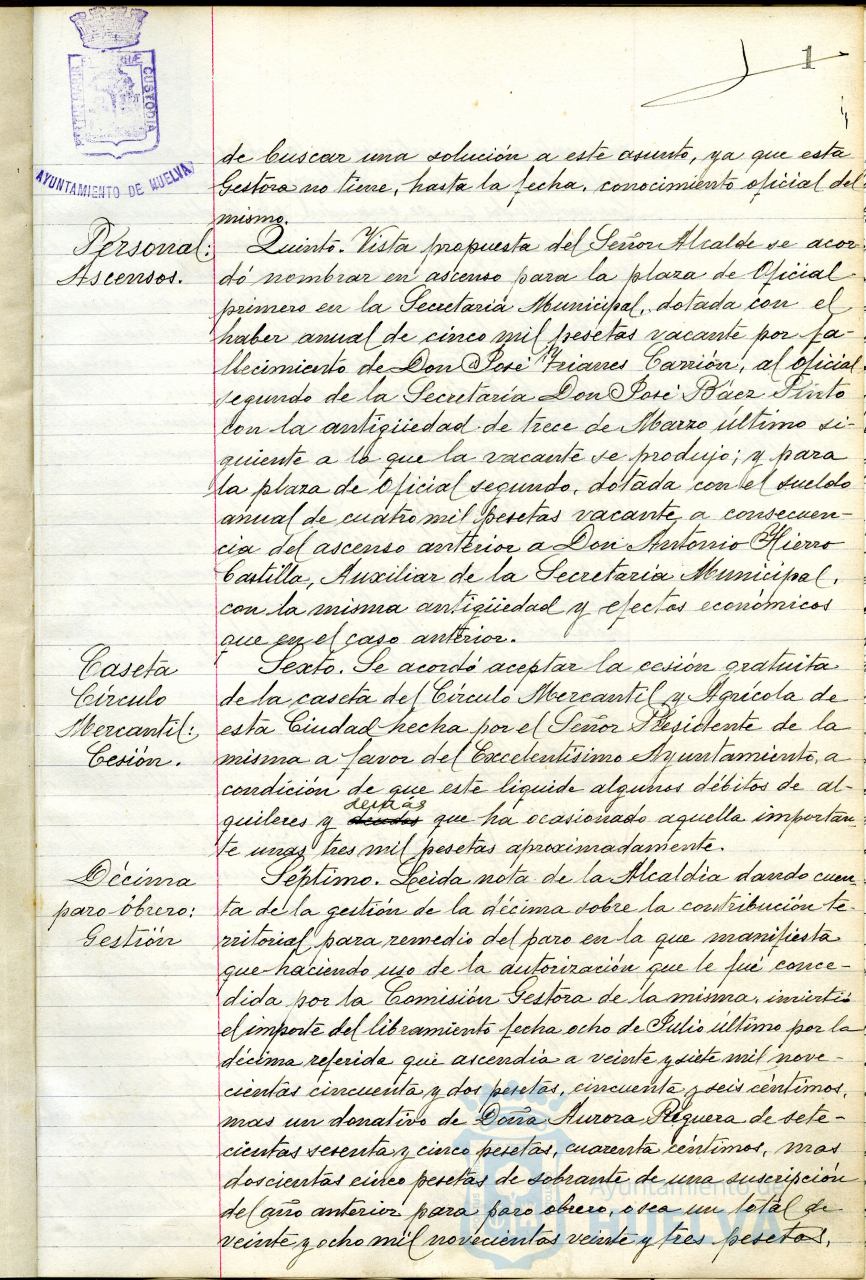 1
PORTUS MARIS ET TERRAE CUSTODIA
AYUNTAMIENTO DE HUELVA
de buscar una solución a este asunto, ya que esta
Gestora no tiene, hasta la fecha, conocimiento oficial del
mismo.
Personal:
Ascensos.
Quinto. Vista propuesta del Señor Alcalde se acor
dó nombrar en ascenso para la plaza de Oficial
primero en la Secretaría Municipal, dotada con el
haber anual de cinco mil pesetas vacante por fa-
llecimiento de Don José Carrión, al oficial
segundo de la Secretaría Don José Báez Pinto
con la antigüedad de trece de Marzo último si-
guiente a lo que la vacante se produjo; y para
la plaza de Oficial segundo, dotada con el sueldo
anual de cuatro mil pesetas vacante a consecuen-
cia del ascenso anterior a Don Antonio Hierro
Castilla, Auxiliar de la Secretaría Municipal,
con la misma antigüedad y efectos económicos
que en el caso anterior.
Caseta
Círculo
Mercantil:
Cesión.
Sexto. Se acordó aceptar la cesión gratuita
de la caseta del Círculo Mercantil y Agrícola de
esta Ciudad hecha por el Señor Presidente de la
misma a favor del Excelentísimo Ayuntamiento, a
condición de que este liquide algunos débitos de al-
quileres y demás que ha ocasionado aquella importan-
te unas tres mil pesetas aproximadamente.
Décima
paro obrero:
Gestión
Séptimo. Leida nota de la Alcaldía dando cuen-
ta de la gestión de la décima sobre la contribución te-
rritorial para remedio del paro en la que manifiesta
que haciendo uso de la autorización que le fué conce-
dida por la Comisión Gestora de la misma, invirtió
el importe del libramiento fecha ocho de Julio último por la
décima referida que ascendía a veinte y siete mil nove-
cientas cincuenta y dos pesetas, cincuenta y seis céntimos,
mas un donativo de Doña Aurora Reguera de sete-
cientas sesenta y cinco pesetas, cuarenta céntimos, mas
doscientas cinco pesetas de sobrante de una suscripción
del año anterior para paro obrero, o sea un total de
veinte y ocho mil novecientas veinte y tres pesetas,
Ayuntamiento de
HUELVA